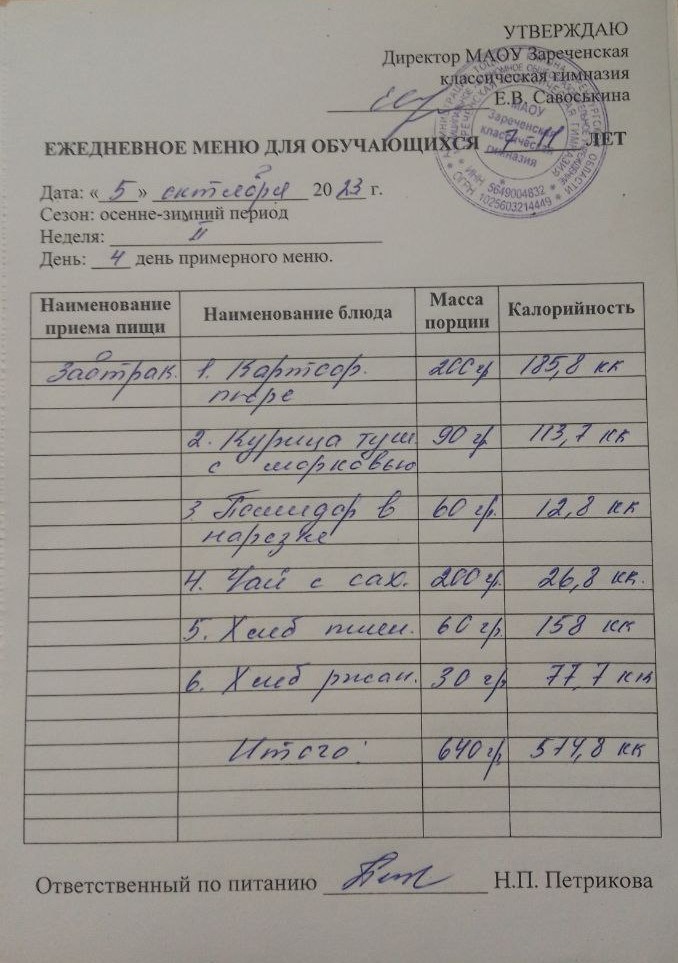 УТВЕРЖДАЮ
Директор МАОУ Зареченская
классическая гимназия
Е.В. Савоськина
ЕЖЕДНЕВНОЕ МЕНЮ ДЛЯ ОБУЧАЮЩИХСЯ 7-11 ЛЕТ
МАОУ
Зареченская
классическая
гимназия
* ИНН 5649004832 *
* ОГРН 1025603214449 *
Дата: « 5 » октября 2023 г.
Сезон: осенне-зимний период
Неделя: II
День: 4 день примерного меню.
Наименование приема пищи Наименование блюда Масса порции Калорийность
Завтрак. 1. Картоф. 200 гр 185,8 кк
пюре
2. Курица туш. 90 гр 113,7 кк
с морковью
3. Помидор в 60 гр. 12,8 кк
нарезке
4. Чай с сах. 200 гр. 26,8 кк.
5. Хлеб пшен. 60 гр. 158 кк
6. Хлеб ржан. 30 гр. 77,7 кк
Итого: 640 гр. 574,8 кк
Ответственный по питанию Н.П. Петрикова